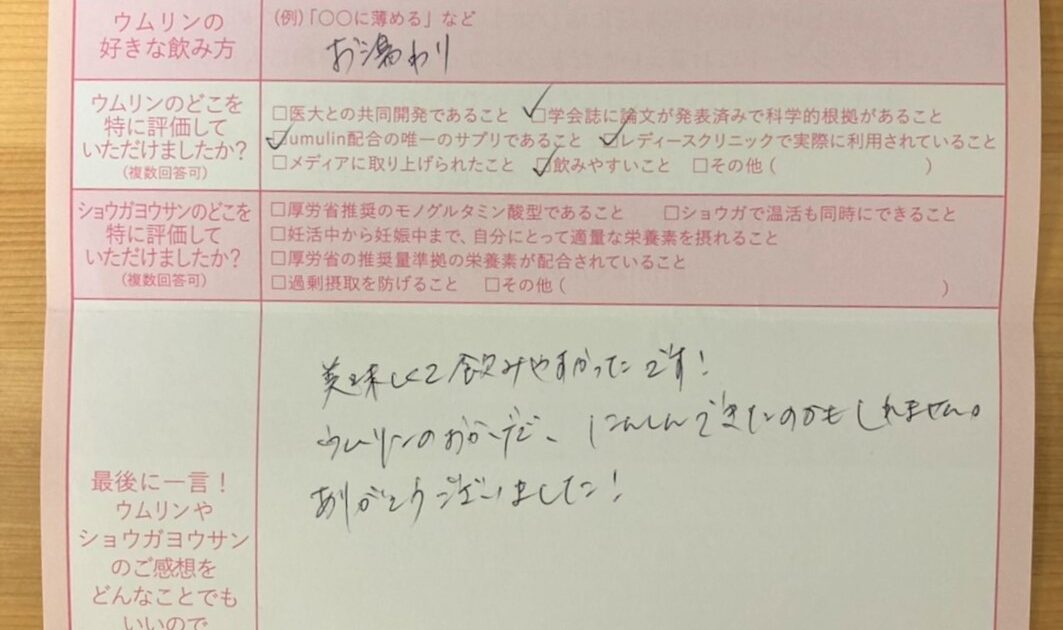 ウムリンの
好きな飲み方
(例)「〇〇に薄める」など
お湯わり
ウムリンのどこを
特に評価して
いただけましたか?
(複数回答可)
□医大との共同開発であること ☑学会誌に論文が発表済みで科学的根拠があること
☑umulin配合の唯一のサプリであること ☑レディースクリニックで実際に利用されていること
□メディアに取り上げられたこと ☑飲みやすいこと □その他( )
ショウガヨウサンのどこを
特に評価して
いただけましたか?
(複数回答可)
□厚労省推奨のモノグルタミン酸型であること □ショウガで温活も同時にできること
□妊活中から妊娠中まで、自分にとって適量な栄養素を摂れること
□厚労省の推奨量準拠の栄養素が配合されていること
□過剰摂取を防げること □その他( )
最後に一言!
ウムリンや
ショウガヨウサン
のご感想を
どんなことでも
いいので
美味しくて飲みやすかったです!
ウムリンのおかげで、にんしんできたのかもしれません。
ありがとうございました!